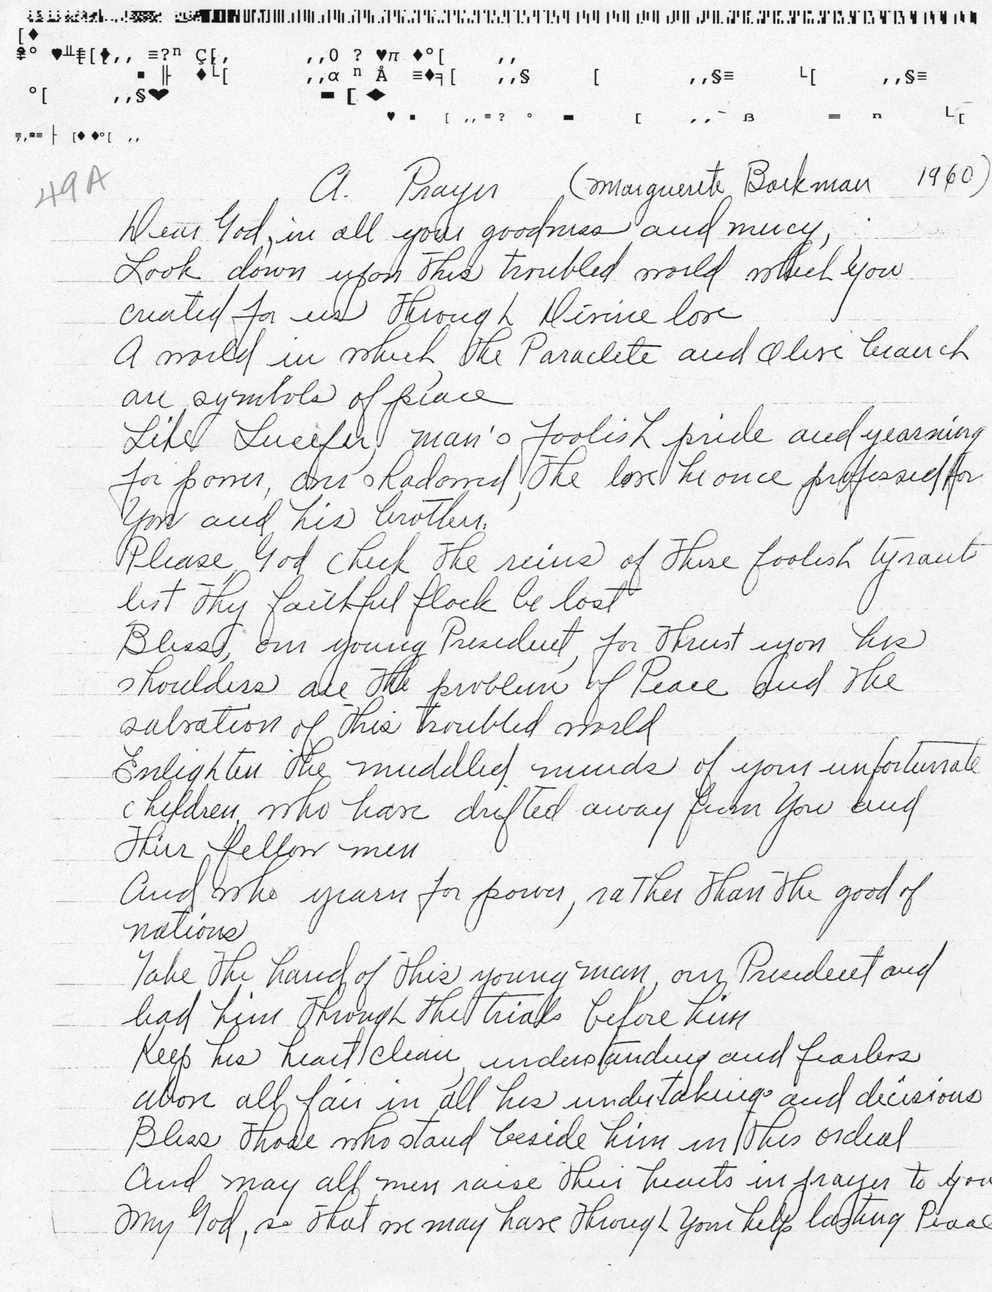 49A
A Prayer (Marguerite Borkman 1960)
Dear God, in all your goodness and mercy,
Look down upon this troubled world which You
created for us through Divine love
A world in which the Paraclete and Olive branch
are symbols of peace
Like Lucifer, man's foolish pride and yearning
for power, over shadowed, the love he once professed for
You and his brother.
Please God check the reins of these foolish tyrants
lest Thy faithful flock be lost
Bless, our young President, for thrust upon his
shoulders are the problem of Peace and the
salvation of this troubled world
Enlighten the muddled minds of your unfortunate
children, who have drifted away from You and
their fellow men
And who yearn for power, rather than the good of
nations
Take the hand of this young man, our President and
lead him through the trials before him
Keep his heart clean, understanding and fearless
above all fair in all his undertakings and decisions
Bless those who stand beside him in this ordeal
And may all men raise their hearts in prayer to You
My God, so that we may have through Your help lasting Peace